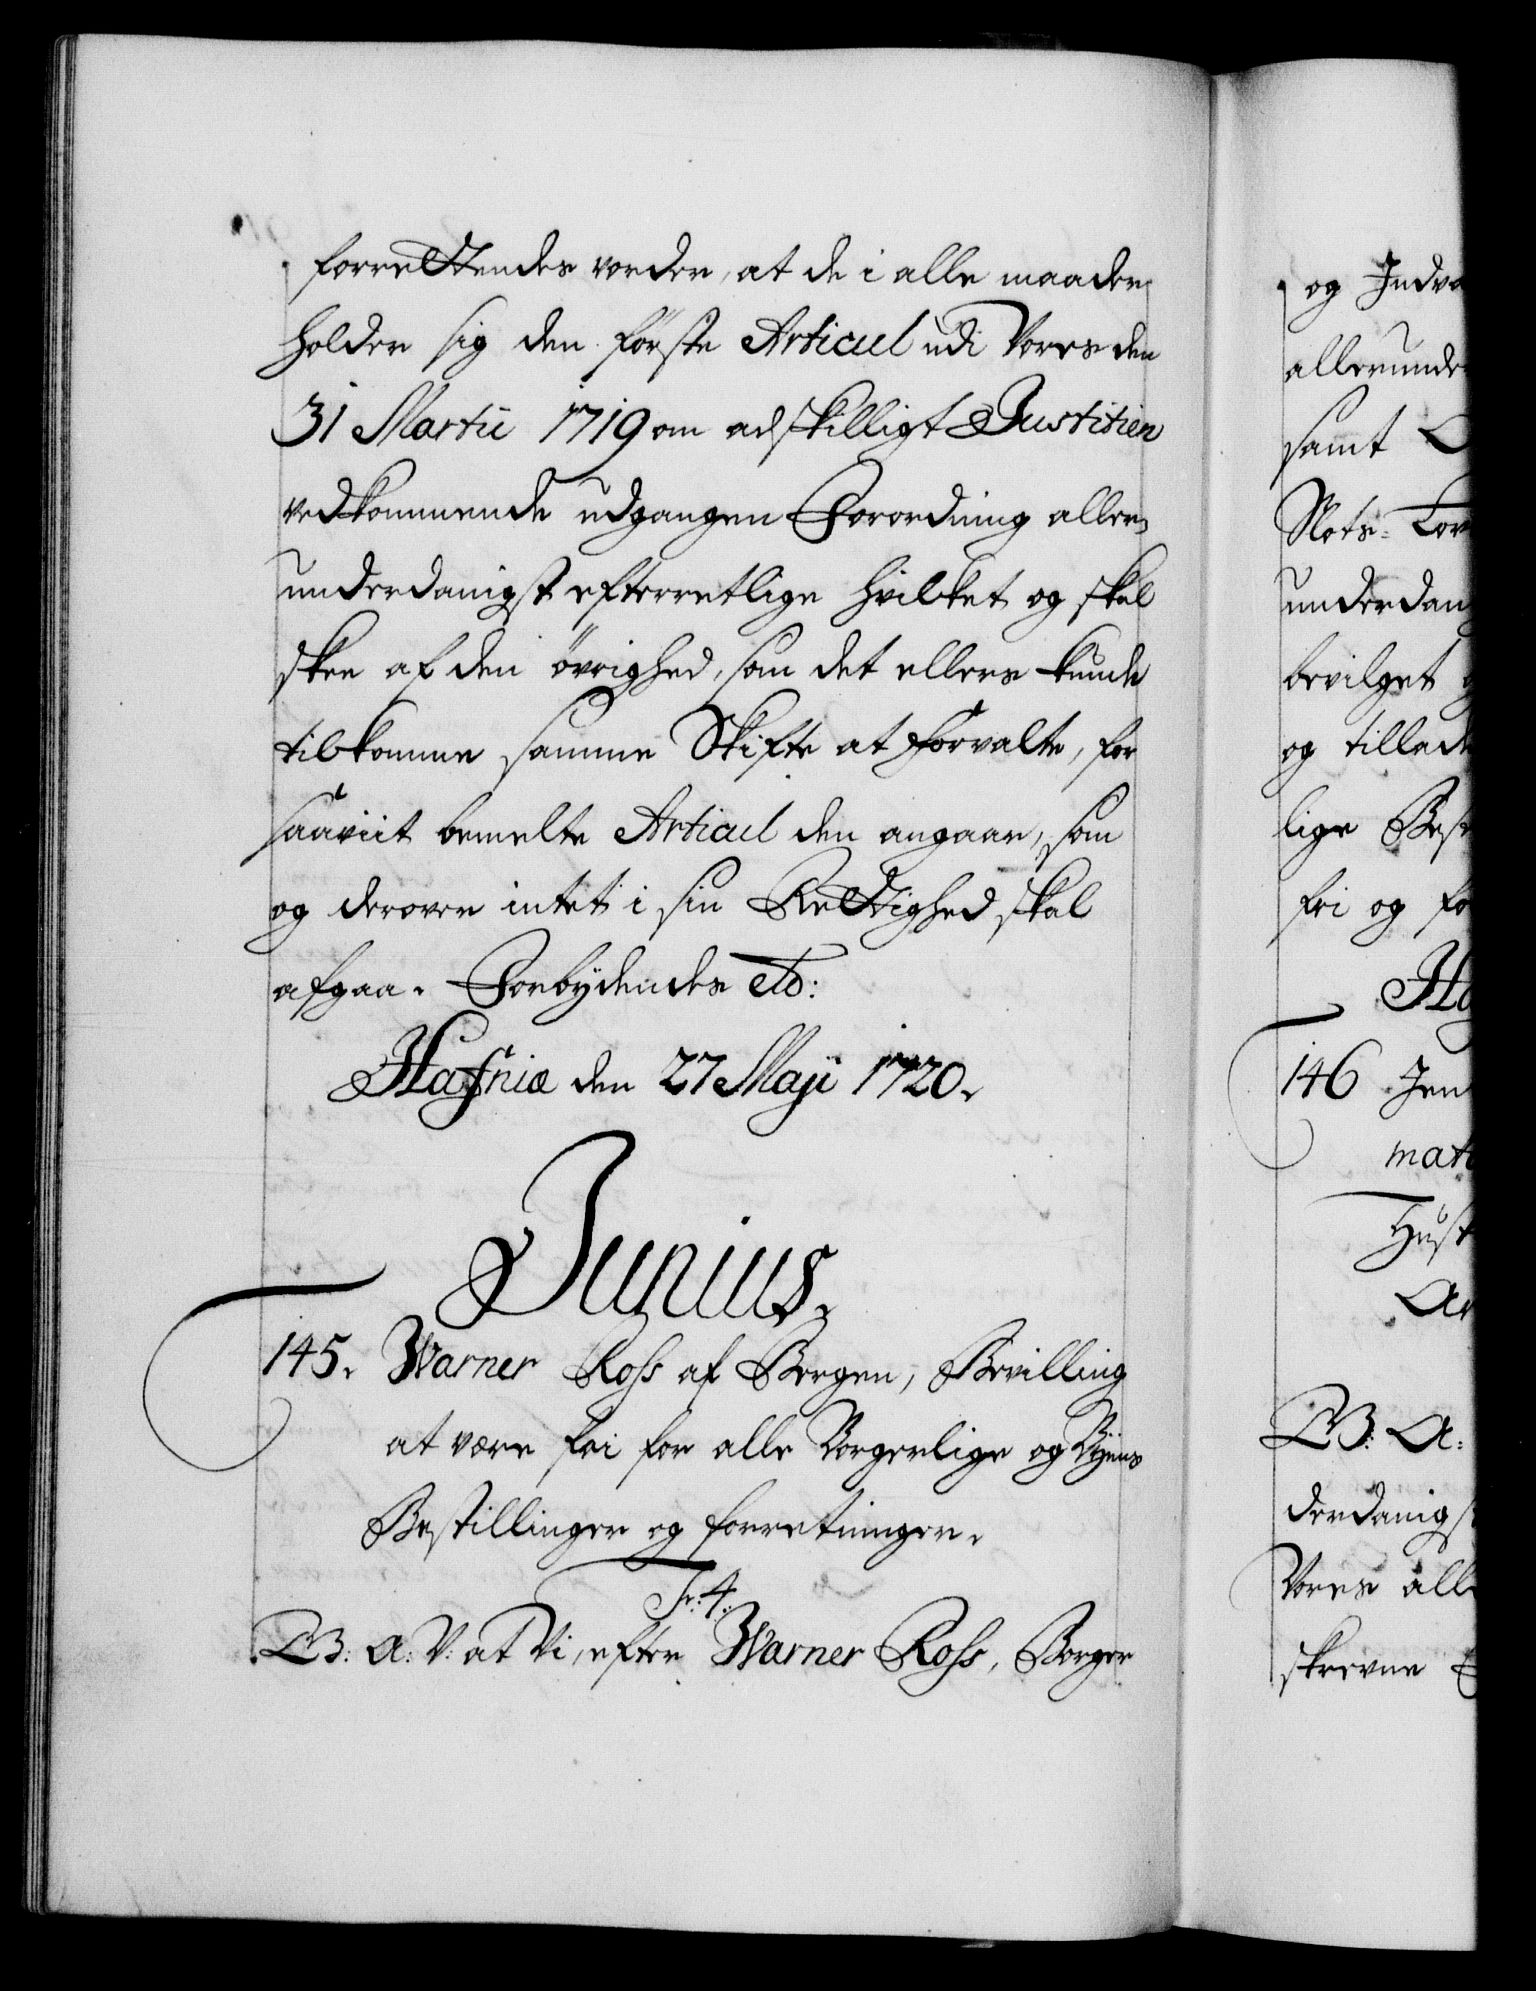 forrettendes vorder, at de i alle maader
holder sig den förste Articul udi Vores den
31 Martii 1719 om adskilligt Justitien
vedkommende udgangen Forordning aller-
underdanigst efterretlige hvilket og skal
skee af den övrighed, som det ellers kunde
tilkomme samme Skifte at forvalte, for
saaviit bemelte Articul den angaar, som
og derover intet i sin Rettighed skal
afgaa. Forbydendes etc:
Hafniæ den 27 Maji 1720.
Junius.
145. Warner Ross af Bergen, Bevilling
at være fri for alle Borgerlige og Byens
Bestillinger og forretninger.
Fr: 4.
G: A: V: at Vi, efter Warner Ross, Borger
og Indvo
allerunder
samt
Slots-
underdan
bevilget
og tillade
lige Best
fri og fo
146 Jen
mat
Hust
G: A:
derdanigs
Vores alle
skrevne